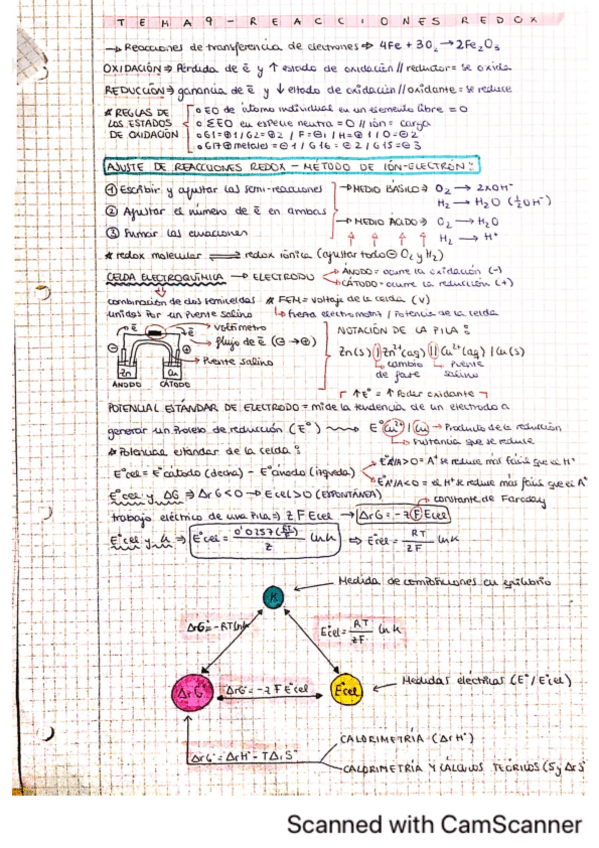 TEMA 9 - REACCIONES REDOX
→ Reacciones de transferencia de electrones ⇒ 4Fe + 3O₂ → 2Fe₂O₃
OXIDACIÓN ⇒ Pérdida de ē y ↑ estado de oxidación // reductor = se oxida
REDUCCIÓN ⇒ ganancia de ē y ↓ estado de oxidación // oxidante = se reduce
* REGLAS DE LOS ESTADOS DE OXIDACIÓN
o EO de átomo individual en un elemento libre = 0
o ΣEO en especie neutra = 0 // ión = carga
o G1=⊕1 / G2=⊕2 / F=⊖1 / H=⊕1 / O=⊖2
o G17 (⊕ metales) = ⊖1 / G16 = ⊖2 / G15 = ⊖3
AJUSTE DE REACCIONES REDOX - MÉTODO DE IÓN-ELECTRÓN:
① Escribir y ajustar las semi-reacciones
② Ajustar el número de ē en ambas
③ Sumar las ecuaciones
→ MEDIO BÁSICO ⇒ O₂ → 2xOH⁻
H₂ → H₂O (½OH⁻)
→ MEDIO ÁCIDO ⇒ O₂ → H₂O
H₂ → H⁺
* redox molecular ⇌ redox iónica (ajustar todo ⊖ O₂ y H₂)
CELDA ELECTROQUÍMICA → ELECTRODO
ÁNODO = ocurre la oxidación (-)
CÁTODO = ocurre la reducción (+)
combinación de dos semiceldas
unidas por un puente salino
* FEM = voltaje de la celda (V)
↳ fuerza electromotriz / Potencia de la celda
ē
ē
→ voltímetro
→ flujo de ē (⊖→⊕)
→ Puente salino
⊖
⊕
Zn
Cu
ÁNODO
CÁTODO
NOTACIÓN DE LA PILA:
Zn(s) | Zn²⁺(aq) || Cu²⁺(aq) | Cu(s)
cambio de fase
puente salino
↑E° = ↑ Poder oxidante
POTENCIAL ESTÁNDAR DE ELECTRODO = mide la tendencia de un electrodo a
generar un proceso de reducción (E°) ⟿ E°Cu²⁺ | Cu → Producto de la reducción
↳ sustancia que se reduce
* Potencial estándar de la celda:
E°cel = E°cátodo (decha) - E°ánodo (izqueda)
E°A⁺/A > 0 = A⁺ se reduce más fácil que el H⁺
E°A⁺/A < 0 = el H⁺ se reduce más fácil que el A⁺
E°cel y ΔG ⇒ ΔrG < 0 → Ecel > 0 (ESPONTÁNEA)
constante de Faraday
trabajo eléctrico de una pila ⇒ zFEcel → ΔrG = -zFEcel
E°cel y K ⇒ E°cel = 0'0257 (RT/F) / z lnK ⇒ E°cel = RT/zF lnK
K
Medida de combinaciones en equilibrio
ΔrG° = -RTlnK
E°cel = RT/zF lnK
ΔrG°
ΔrG° = -zFE°cel
E°cel
Medidas eléctricas (E°/E°cel)
ΔrG° = ΔrH° - TΔrS°
CALORIMETRÍA (ΔrH°)
CALORIMETRÍA Y CÁLCULOS TEÓRICOS (S y ΔrS°
Scanned with CamScanner